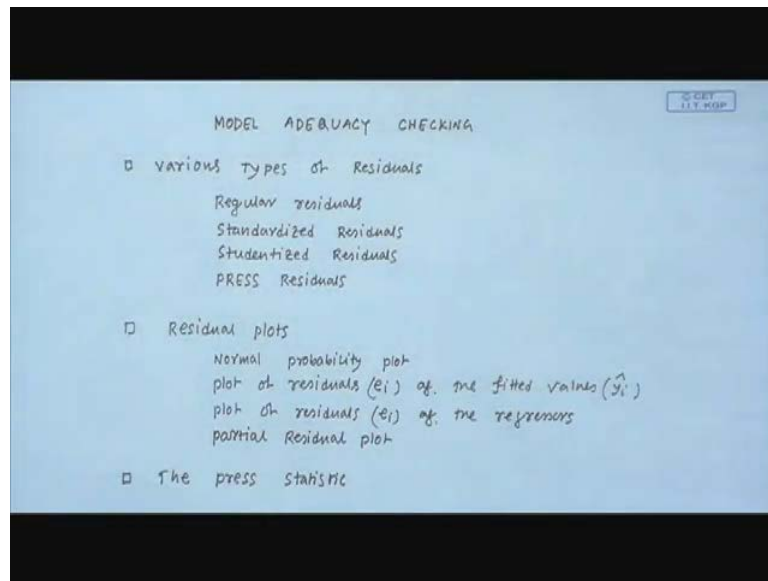 © CET
I.I.T. KGP
MODEL ADEQUACY CHECKING
Various Types of Residuals
Regular residuals
Standardized Residuals
Studentized Residuals
PRESS Residuals
Residual plots
Normal probability plot
plot of residuals (ei) ag. the fitted values (ŷi)
plot of residuals (ei) ag. the regressors
partial Residual plot
The press statistic